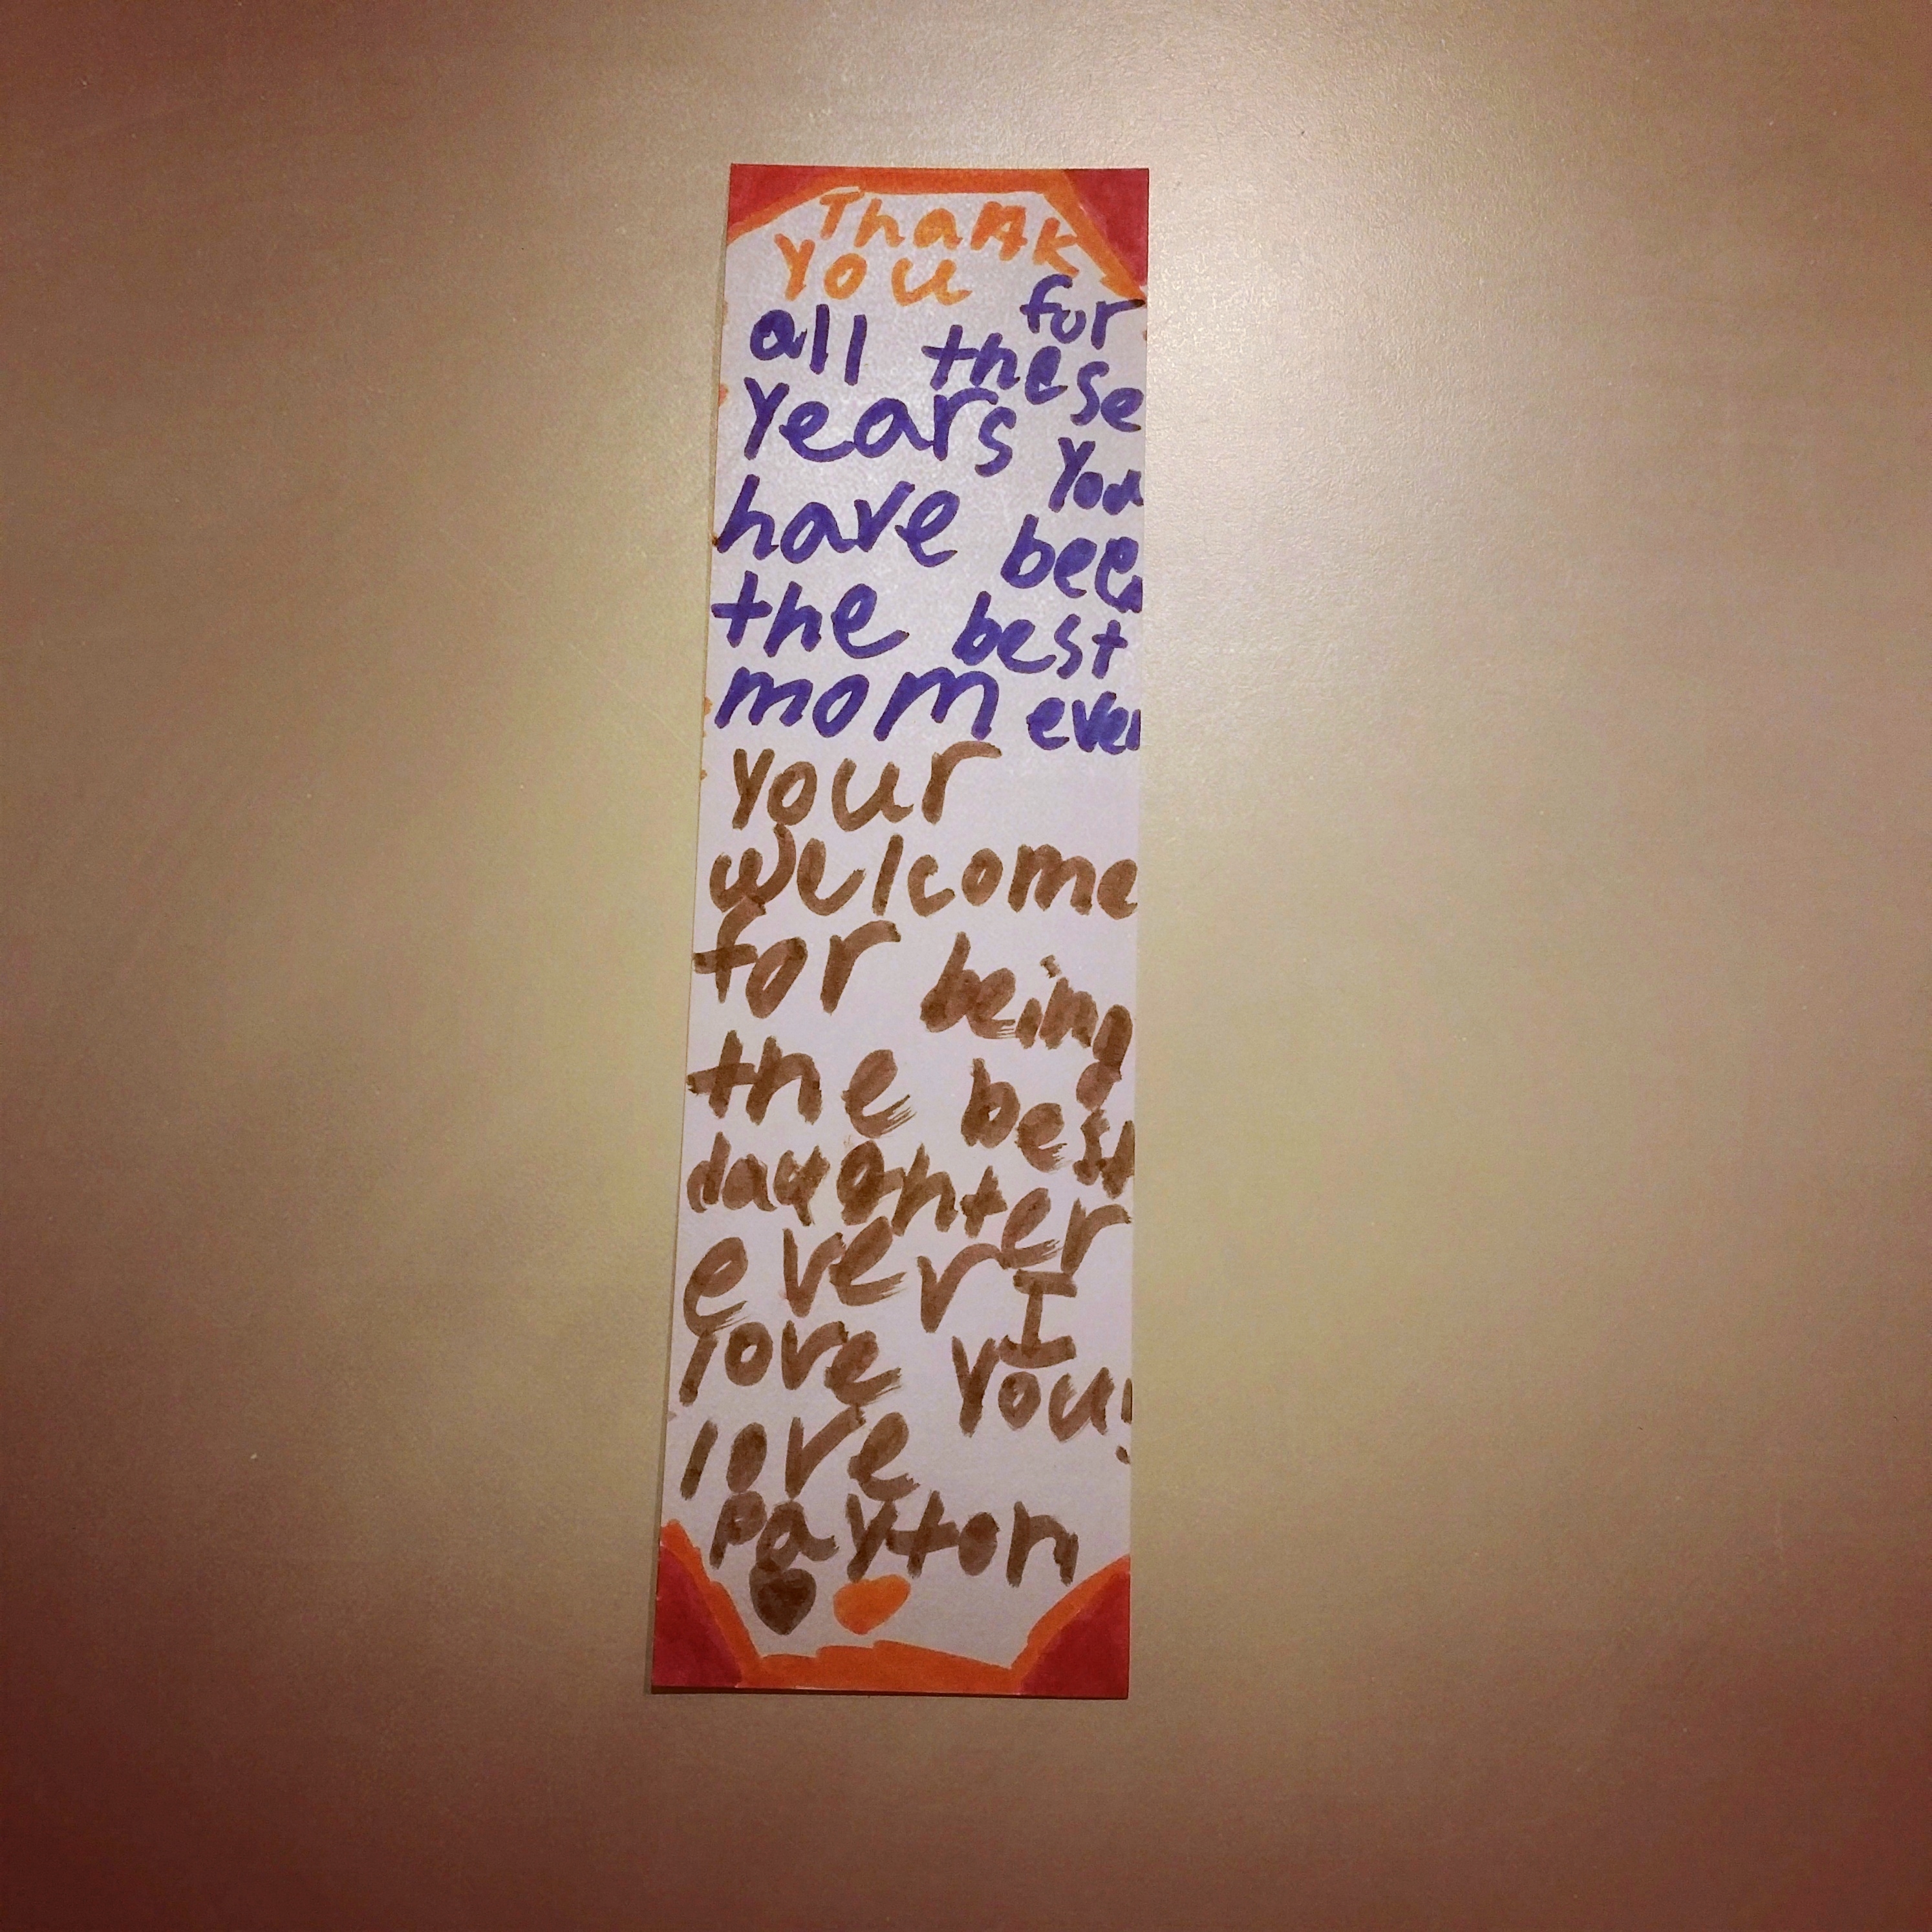 Thank
you for
all these
Years You
have been
the best
mom ever
Your
welcome
for being
the best
daughter
ever I
love You!
love
Payton